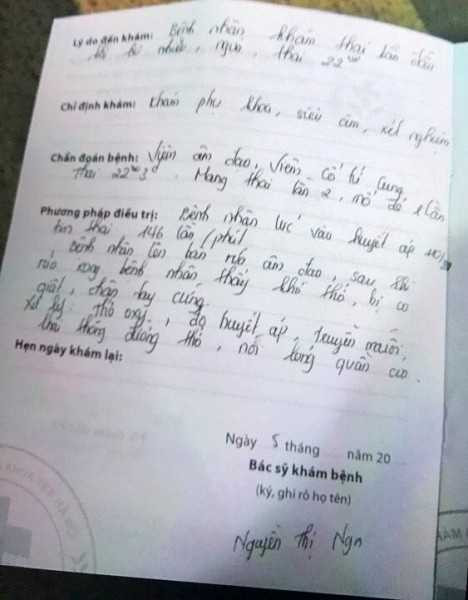 Lý do đến khám: Bệnh nhân khám thai lần đầu
khí hư nhiều, ngứa, thai 22w
Chỉ định khám: Khám phụ khoa, siêu âm, xét nghiệm
Chẩn đoán bệnh: Viêm âm đạo, viêm cổ tử cung
Thai 22w3d. Mang thai lần 2, mổ đẻ 1 lần
Phương pháp điều trị: Bệnh nhân lúc vào huyết áp 110/
tim thai 146 lần/phút.
Bệnh nhân lên bàn rửa âm đạo, sau khi
rửa xong bệnh nhân thấy khó thở, bị co
giật, chân tay cứng.
Xử lý: thở oxy, đo huyết áp, truyền muối,
khai thông đường thở, nới lỏng quần áo.
Hẹn ngày khám lại:
Ngày 5 tháng năm 20
Bác sỹ khám bệnh
(ký, ghi rõ họ tên)
Nguyễn Thị Nga